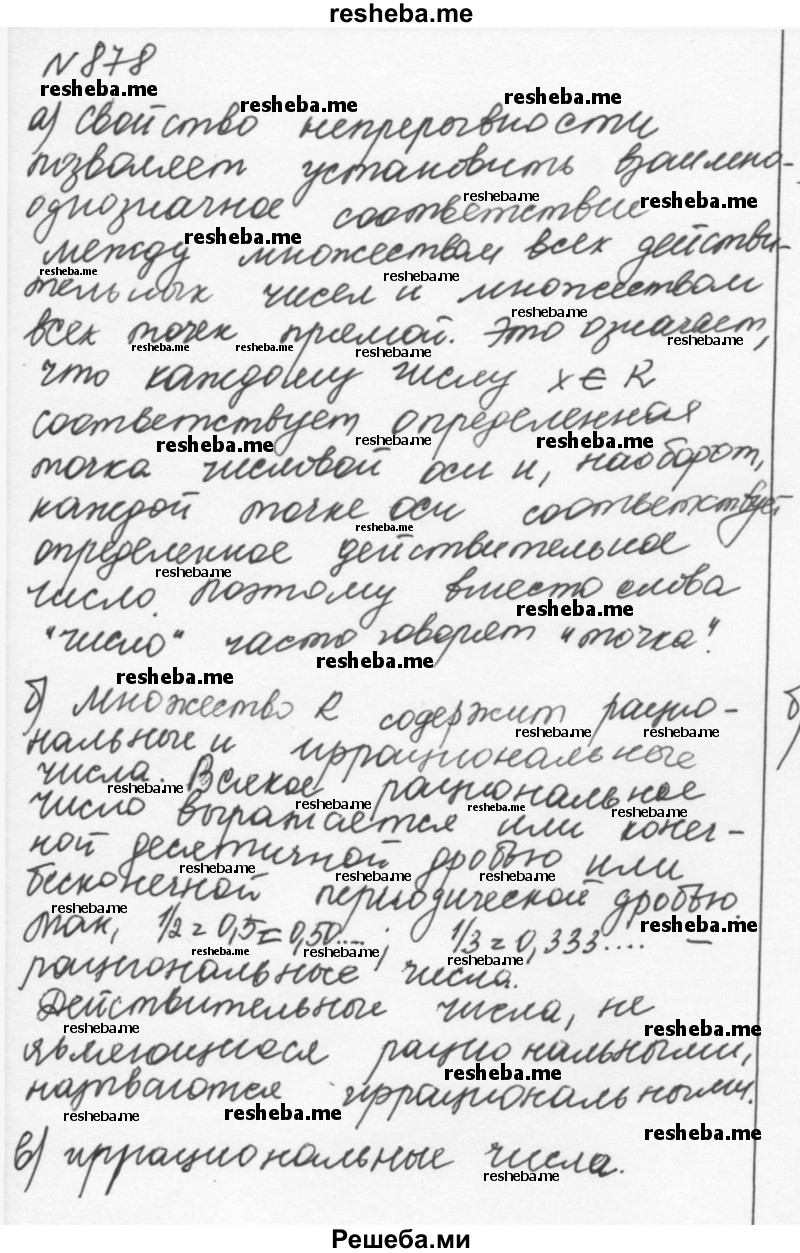 resheba.me
№878
а) Свойство непрерывности
позволяет установить взаимно-
однозначное соответствие
между множеством всех действи-
тельных чисел и множеством
всех точек прямой. Это означает,
что каждому числу x ∈ R
соответствует определенная
точка числовой оси и, наоборот,
каждой точке оси соответствует
определенное действительное
число. Поэтому вместо слова
"число" часто говорят "точка".
б) Множество R содержит рацио-
нальные и иррациональные
числа. Всякое рациональное
число выражается или конеч-
ной десятичной дробью или
бесконечной периодической дробью.
Так, 1/2 = 0,5 = 0,50...; 1/3 = 0,333.... –
рациональные числа.
Действительные числа, не
являющиеся рациональными,
называются иррациональными.
в) иррациональные числа.
б)
Решеба.ми